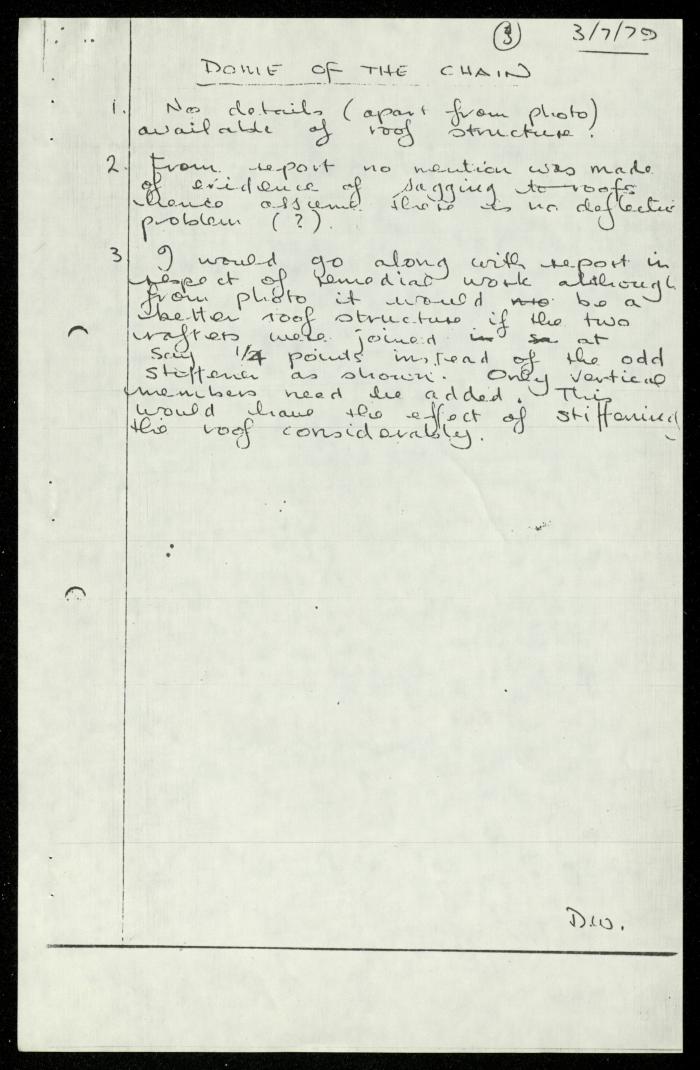 3 3/7/79
DOME OF THE CHAIN
1. No details (apart from photo)
available of roof structure.
2. From report no mention was made
of evidence of sagging to roofs
hence assume there is no deflection
problem (?).
3 I would go along with report in
respect of remedial work although
from photo it would be a
better roof structure if the two
rafters were joined at
say 1/4 points instead of the odd
stiffener as shown. Only vertical
members need be added. This
would have the effect of stiffening
the roof considerably.
D.W.